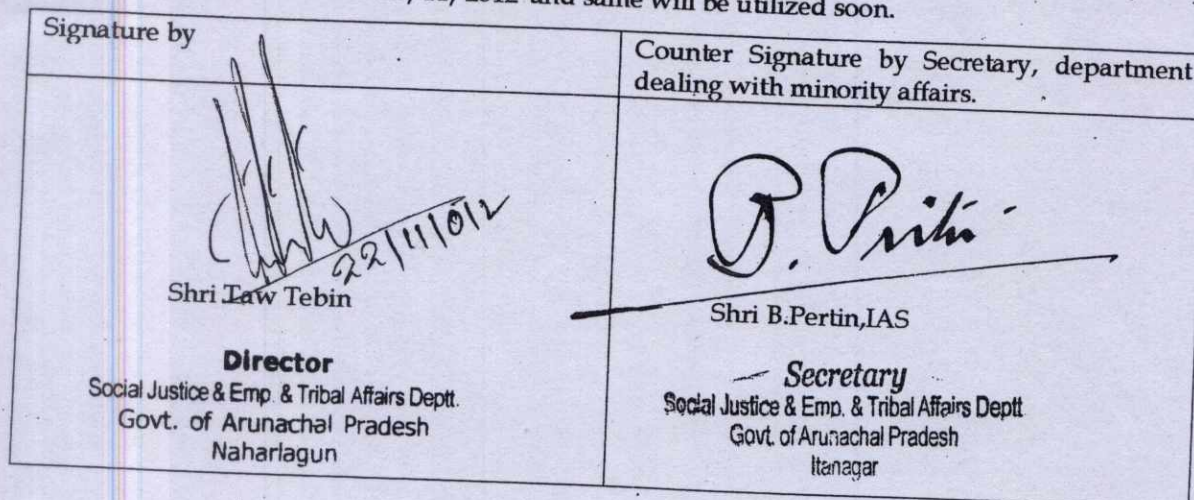 2012 and same will be utilized soon.
Signature by
Counter Signature by Secretary, department
dealing with minority affairs.
22/11/012
Shri Taw Tebin
Director
Social Justice & Emp. & Tribal Affairs Deptt.
Govt. of Arunachal Pradesh
Naharlagun
B. Pertin
Shri B.Pertin,IAS
Secretary
Social Justice & Emp. & Tribal Affairs Deptt
Govt. of Arunachal Pradesh
Itanagar